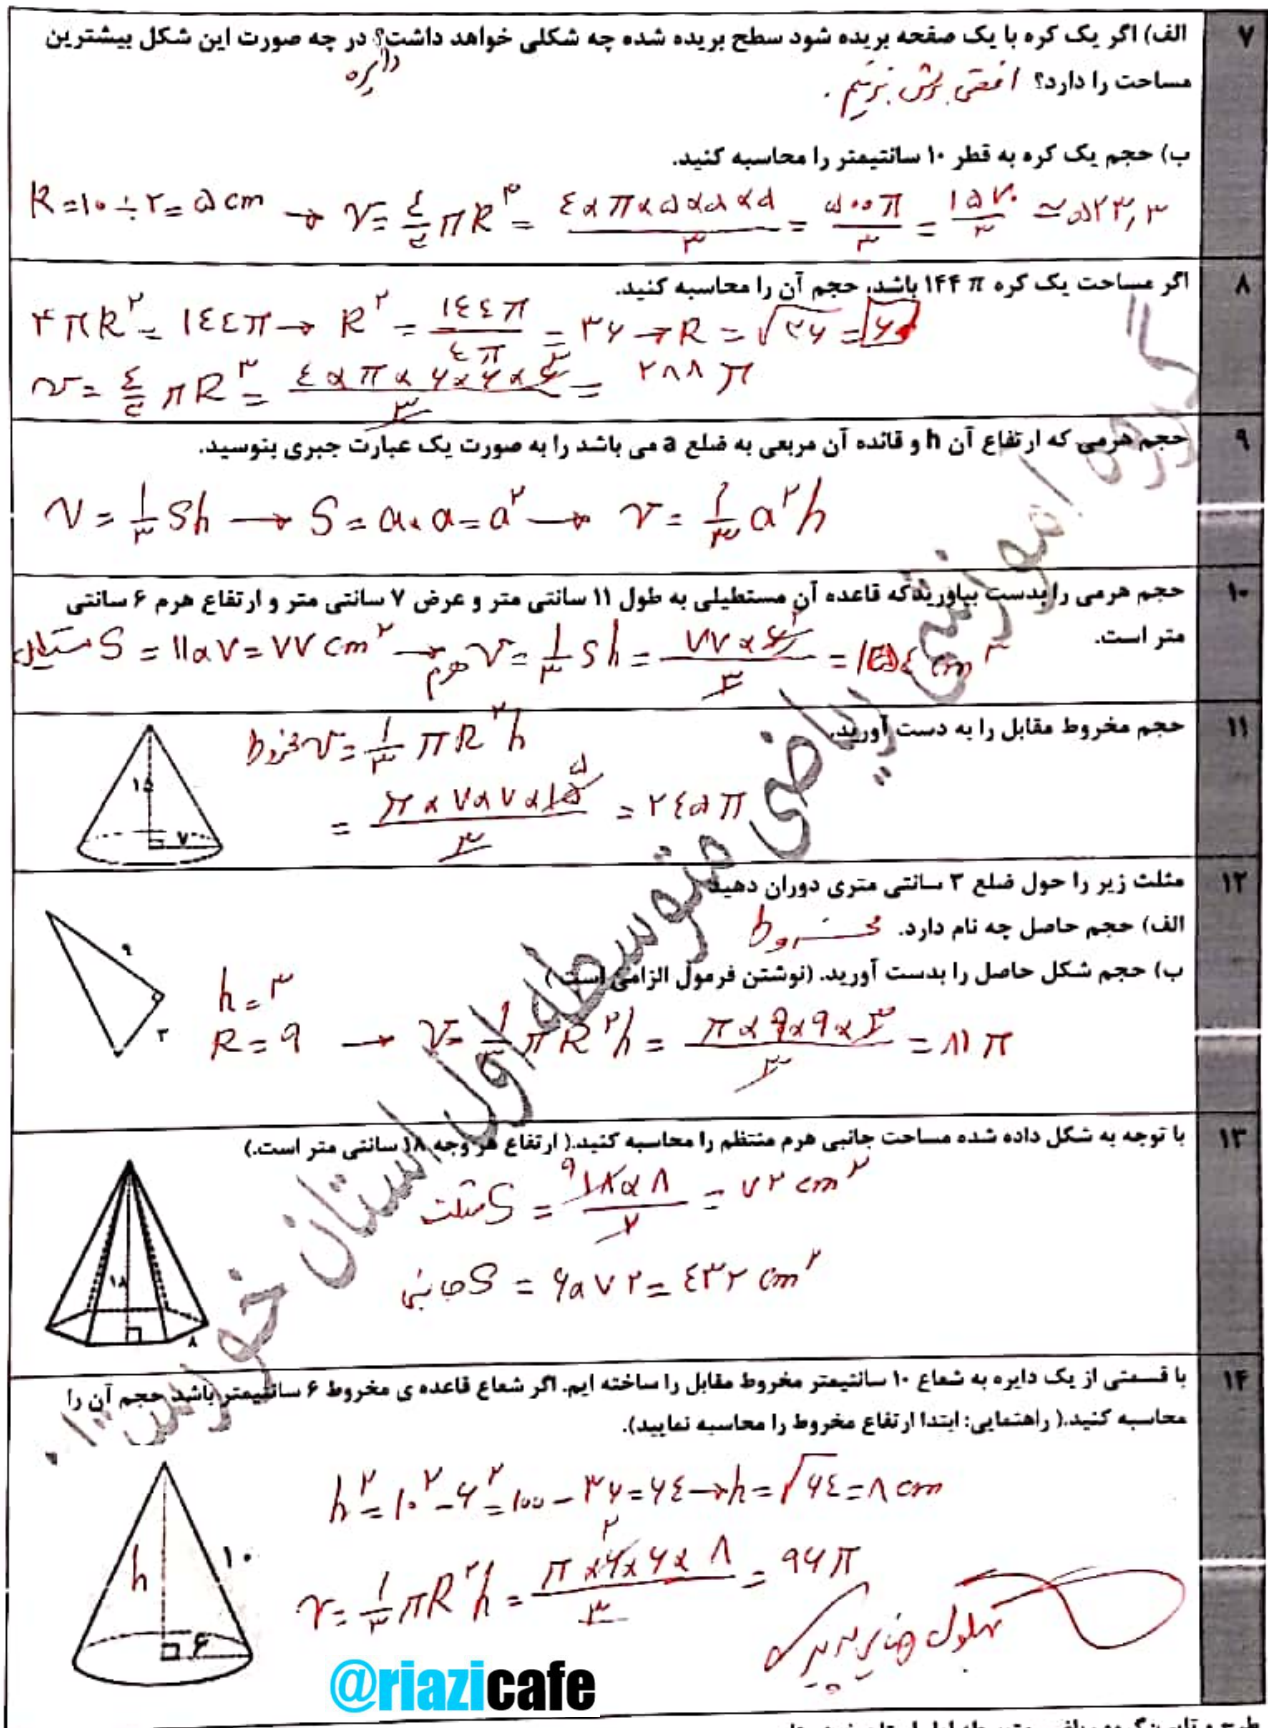 ۷
الف) اگر یک کره با یک صفحه بریده شود سطح بریده شده چه شکلی خواهد داشت؟ در چه صورت این شکل بیشترین
دایره
مساحت را دارد؟ افقی برش بزنیم.
ب) حجم یک کره به قطر ۱۰ سانتیمتر را محاسبه کنید.
R=۱۰÷۲=۵ cm → V=۴/۳ πR^۳ = ۴×π×۵×۵×۵/۳ = ۵۰۰π/۳ = ۱۵۷۰/۳ ≃ ۵۲۳,۳
۸
اگر مساحت یک کره ۱۴۴ π باشد، حجم آن را محاسبه کنید.
۴πR^۲ = ۱۴۴π → R^۲ = ۱۴۴π/۴π = ۳۶ → R = √۳۶ = ۶
V = ۴/۳ πR^۳ = ۴×π×۶×۶×۶/۳ = ۲۸۸ π
۹
حجم هرمی که ارتفاع آن h و قائده آن مربعی به ضلع a می باشد را به صورت یک عبارت جبری بنوسید.
V = ۱/۳ Sh → S = a×a = a^۲ → V = ۱/۳ a^۲h
۱۰
حجم هرمی را بدست بیاوریدکه قاعده آن مستطیلی به طول ۱۱ سانتی متر و عرض ۷ سانتی متر و ارتفاع هرم ۶ سانتی
متر است.
S مستطیل = ۱۱×۷=۷۷ cm^۲ → V هرم = ۱/۳ Sh = ۷۷×۶/۳ = ۱۵۴ cm^۳
۱۱
حجم مخروط مقابل را به دست آورید.
V مخروط = ۱/۳ πR^۲h
= π×۷×۷×۱۵/۳ = ۲۴۵π
۵
۱۵
۷
۱۲
مثلث زیر را حول ضلع ۳ سانتی متری دوران دهید
الف) حجم حاصل چه نام دارد. مخروط
ب) حجم شکل حاصل را بدست آورید. (نوشتن فرمول الزامی است)
۹
۳
h=۳
R=۹ → V=۱/۳ πR^۲h = π×۹×۹×۳/۳ = ۸۱ π
۱۳
با توجه به شکل داده شده مساحت جانبی هرم منتظم را محاسبه کنید.( ارتفاع هر وجه ۱۸ سانتی متر است.)
S مثلث = ۱۸×۸/۲ = ۷۲ cm^۲
۹
S جانبی = ۶×۷۲ = ۴۳۲ cm^۲
۱۸
۸
۱۴
با قسمتی از یک دایره به شعاع ۱۰ سانتیمتر مخروط مقابل را ساخته ایم. اگر شعاع قاعده ی مخروط ۶ سانتیمتر باشد حجم آن را
محاسبه کنید.( راهنمایی: ابتدا ارتفاع مخروط را محاسبه نمایید).
h^۲=۱۰^۲-۶^۲=۱۰۰-۳۶=۶۴→h=√۶۴=۸ cm
V=۱/۳ πR^۲h = π×۶×۶×۸/۳ = ۹۶π
۲
h
۱۰
۶
گروه آموزشی ریاضی متوسطه اول استان خراسان
@riazicafe